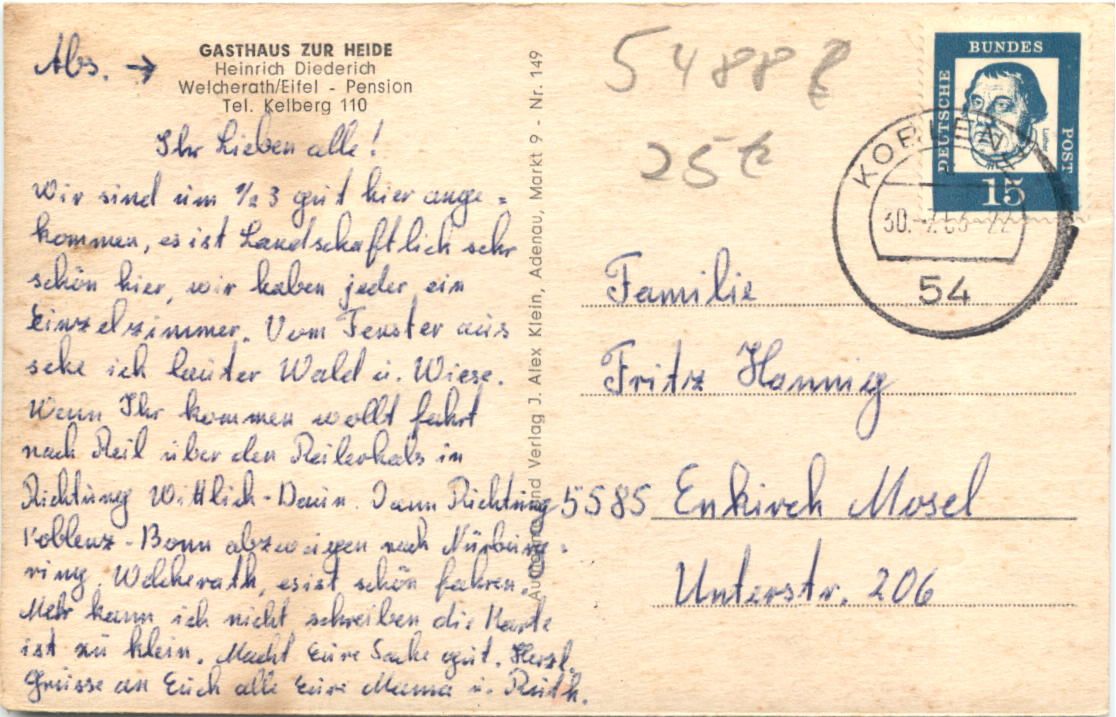 Abs. →
GASTHAUS ZUR HEIDE
Heinrich Diederich
Welcherath/Eifel - Pension
Tel. Kelberg 110
Ihr Lieben alle!
Wir sind um 1/2 3 gut hier ange=
kommen, es ist Landschaftlich sehr
schön hier, wir haben jeder ein
Einzelzimmer. Vom Fenster aus
sehe ich lauter Wald u. Wiese.
Wenn Ihr kommen wollt fahrt
nach Reil über den Reilerhals in
Richtung Wittlich-Daun. Dann Richtung
Koblenz-Bonn abzweigen nach Nürburg=
ring. Welcherath, es ist schön fahren.
Mehr kann ich nicht schreiben die Karte
ist zu klein. Macht Eure Sache gut. Herzl.
Grüsse an Euch alle Eure Mama u. Ruth.
und Verlag J. Alex Klein, Adenau, Markt 9 - Nr. 149
54888
25
DEUTSCHE
BUNDES
POST
Luther
15
30.
54
Familie
Fritz Hannig
5585 Enkirch Mosel
Unterstr. 206